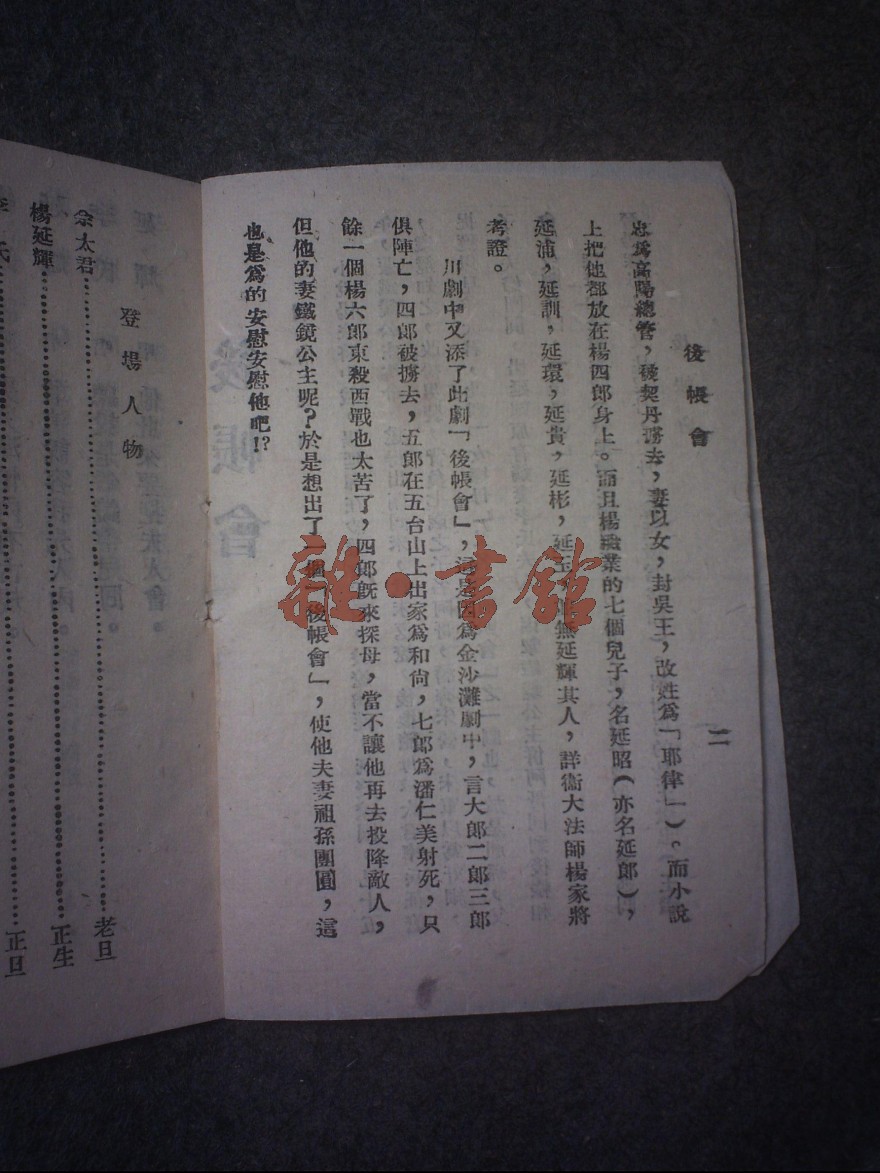 後帳會
二
忠爲高陽總管，後契丹擄去，妻以女，封吳王，改姓爲「耶律」）。而小說
上把他都放在楊四郎身上。而且楊繼業的七個兒子，名延昭（亦名延郎），
延浦，延訓，延環，延貴，延彬，延玉，無延輝其人，詳衞大法師楊家將
考證。
川劇中又添了此劇「後帳會」，這是因爲金沙灘劇中，言大郎二郎三郎
俱陣亡，四郎被擄去，五郎在五台山上出家爲和尙，七郎爲潘仁美射死，只
餘一個楊六郎東殺西戰也太苦了，四郎旣來探母，當不讓他再去投降敵人，
但他的妻鐵鏡公主呢？於是想出了一個「後帳會」，使他夫妻祖孫團圓，這
也是爲的安慰安慰他吧!?
登場人物
佘太君……老旦
楊延輝……正生
李氏……正旦
雜·書館